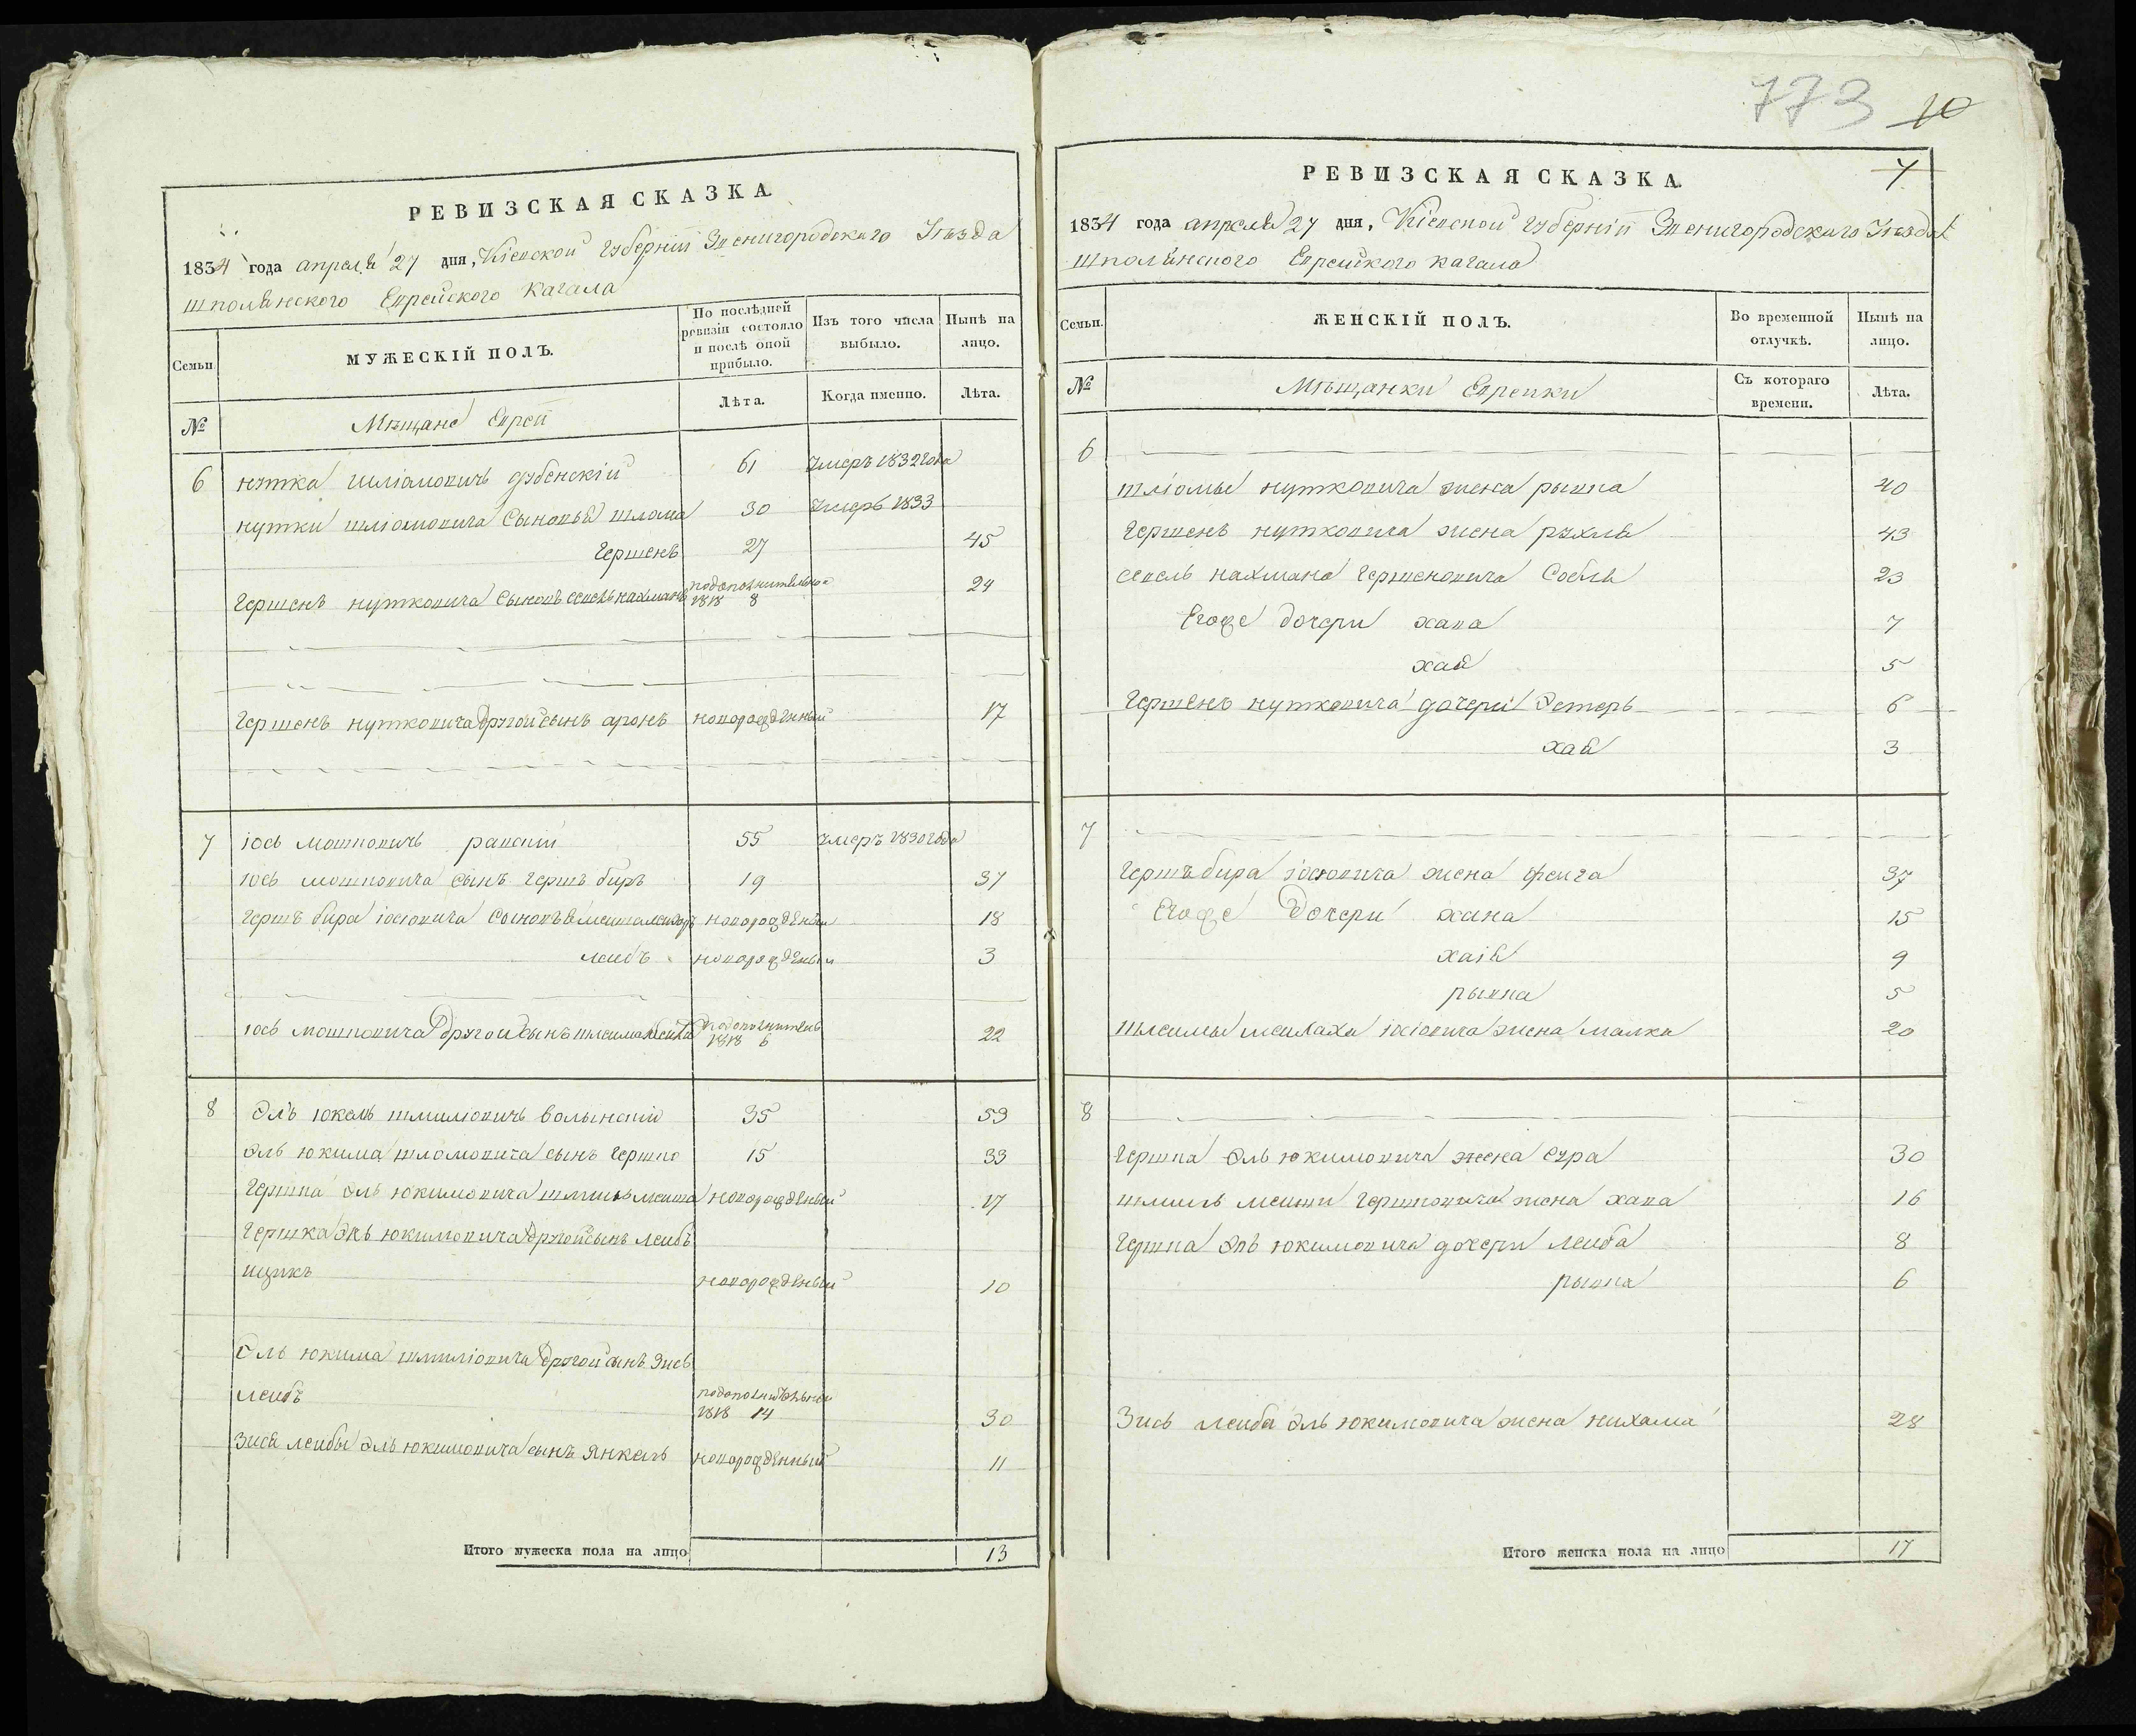 773 10
РЕВИЗСКАЯ СКАЗКА.
1834 года апреля 27 дня, Кіевской губерніи Звенигородского Уѣзда
шполянского Еврейского кагала
Семьи.
МУЖЕСКІЙ ПОЛЪ.
По послѣдней ревизіи состояло и послѣ оной прибыло.
Изъ того числа выбыло.
Нынѣ на лицо.
№
Мѣщане Евреи
Лѣта.
Когда именно.
Лѣта.
6 нутка шліомовичъ дубенскій 61 умеръ 1832 года
нутки шліомовича сыновья шлома 30 умеръ 1833
гершенъ 27 45
гершенъ нутковича сыновъ нахманъ подополнительной 1818 8 24
гершенъ нутковича другой сынъ аронъ новорожденный 17
7 іось мошковичъ равскій 55 умеръ 1830 года
іось мошковича сынъ гершъ биръ 19 37
гершъ бира іосіовича сыновья новорожденый 18
леибъ новорожденый 3
іось мошковича другой сынъ 1818 6 22
8 Эль юкель шмиліовичъ волынскій 35 59
эль юкима шломовича сынъ гершко 15 33
гершка эль юкимовича шмиль новорожденый 17
гершка эль юкимовича другой сынъ леибъ
ицикъ новорожденый 10
Эль юкима шмиліовича другой сынъ зись
леибъ подополнительной 1818 14 30
Зися леибы эль юкимовича сынъ янкель новорожденный 11
Итого мужеска пола на лицо 13
РЕВИЗСКАЯ СКАЗКА. 7
1834 года апреля 27 дня, Кіевской губерніи Звенигородского Уѣзда
шполянского Еврейского кагала
Семьи.
ЖЕНСКІЙ ПОЛЪ.
Во временной отлучкѣ.
Нынѣ на лицо.
№
Мѣщанки Еврейки
Съ котораго времени.
Лѣта.
6
шліомы нутковича жена рывка 40
гершенъ нутковича жена рухля 43
нахмана гершеновича Собля 23
Егоже дочери хава 7
хая 5
гершенъ нутковича дочери Эстеръ 6
хая 3
7
гершъ бира іосіовича жена фейга 37
Егоже дочери хана 15
хаія 9
рывка 5
меилаха іосіовича жена малка 20
8
гершка эль юкимовича жена сура 30
шмиль гершковича жена хава 16
гершка эль юкимовича дочери леиба 8
рывка 6
Зись леиба эль юкимовича жена нихама 28
Итого женска пола на лицо 17